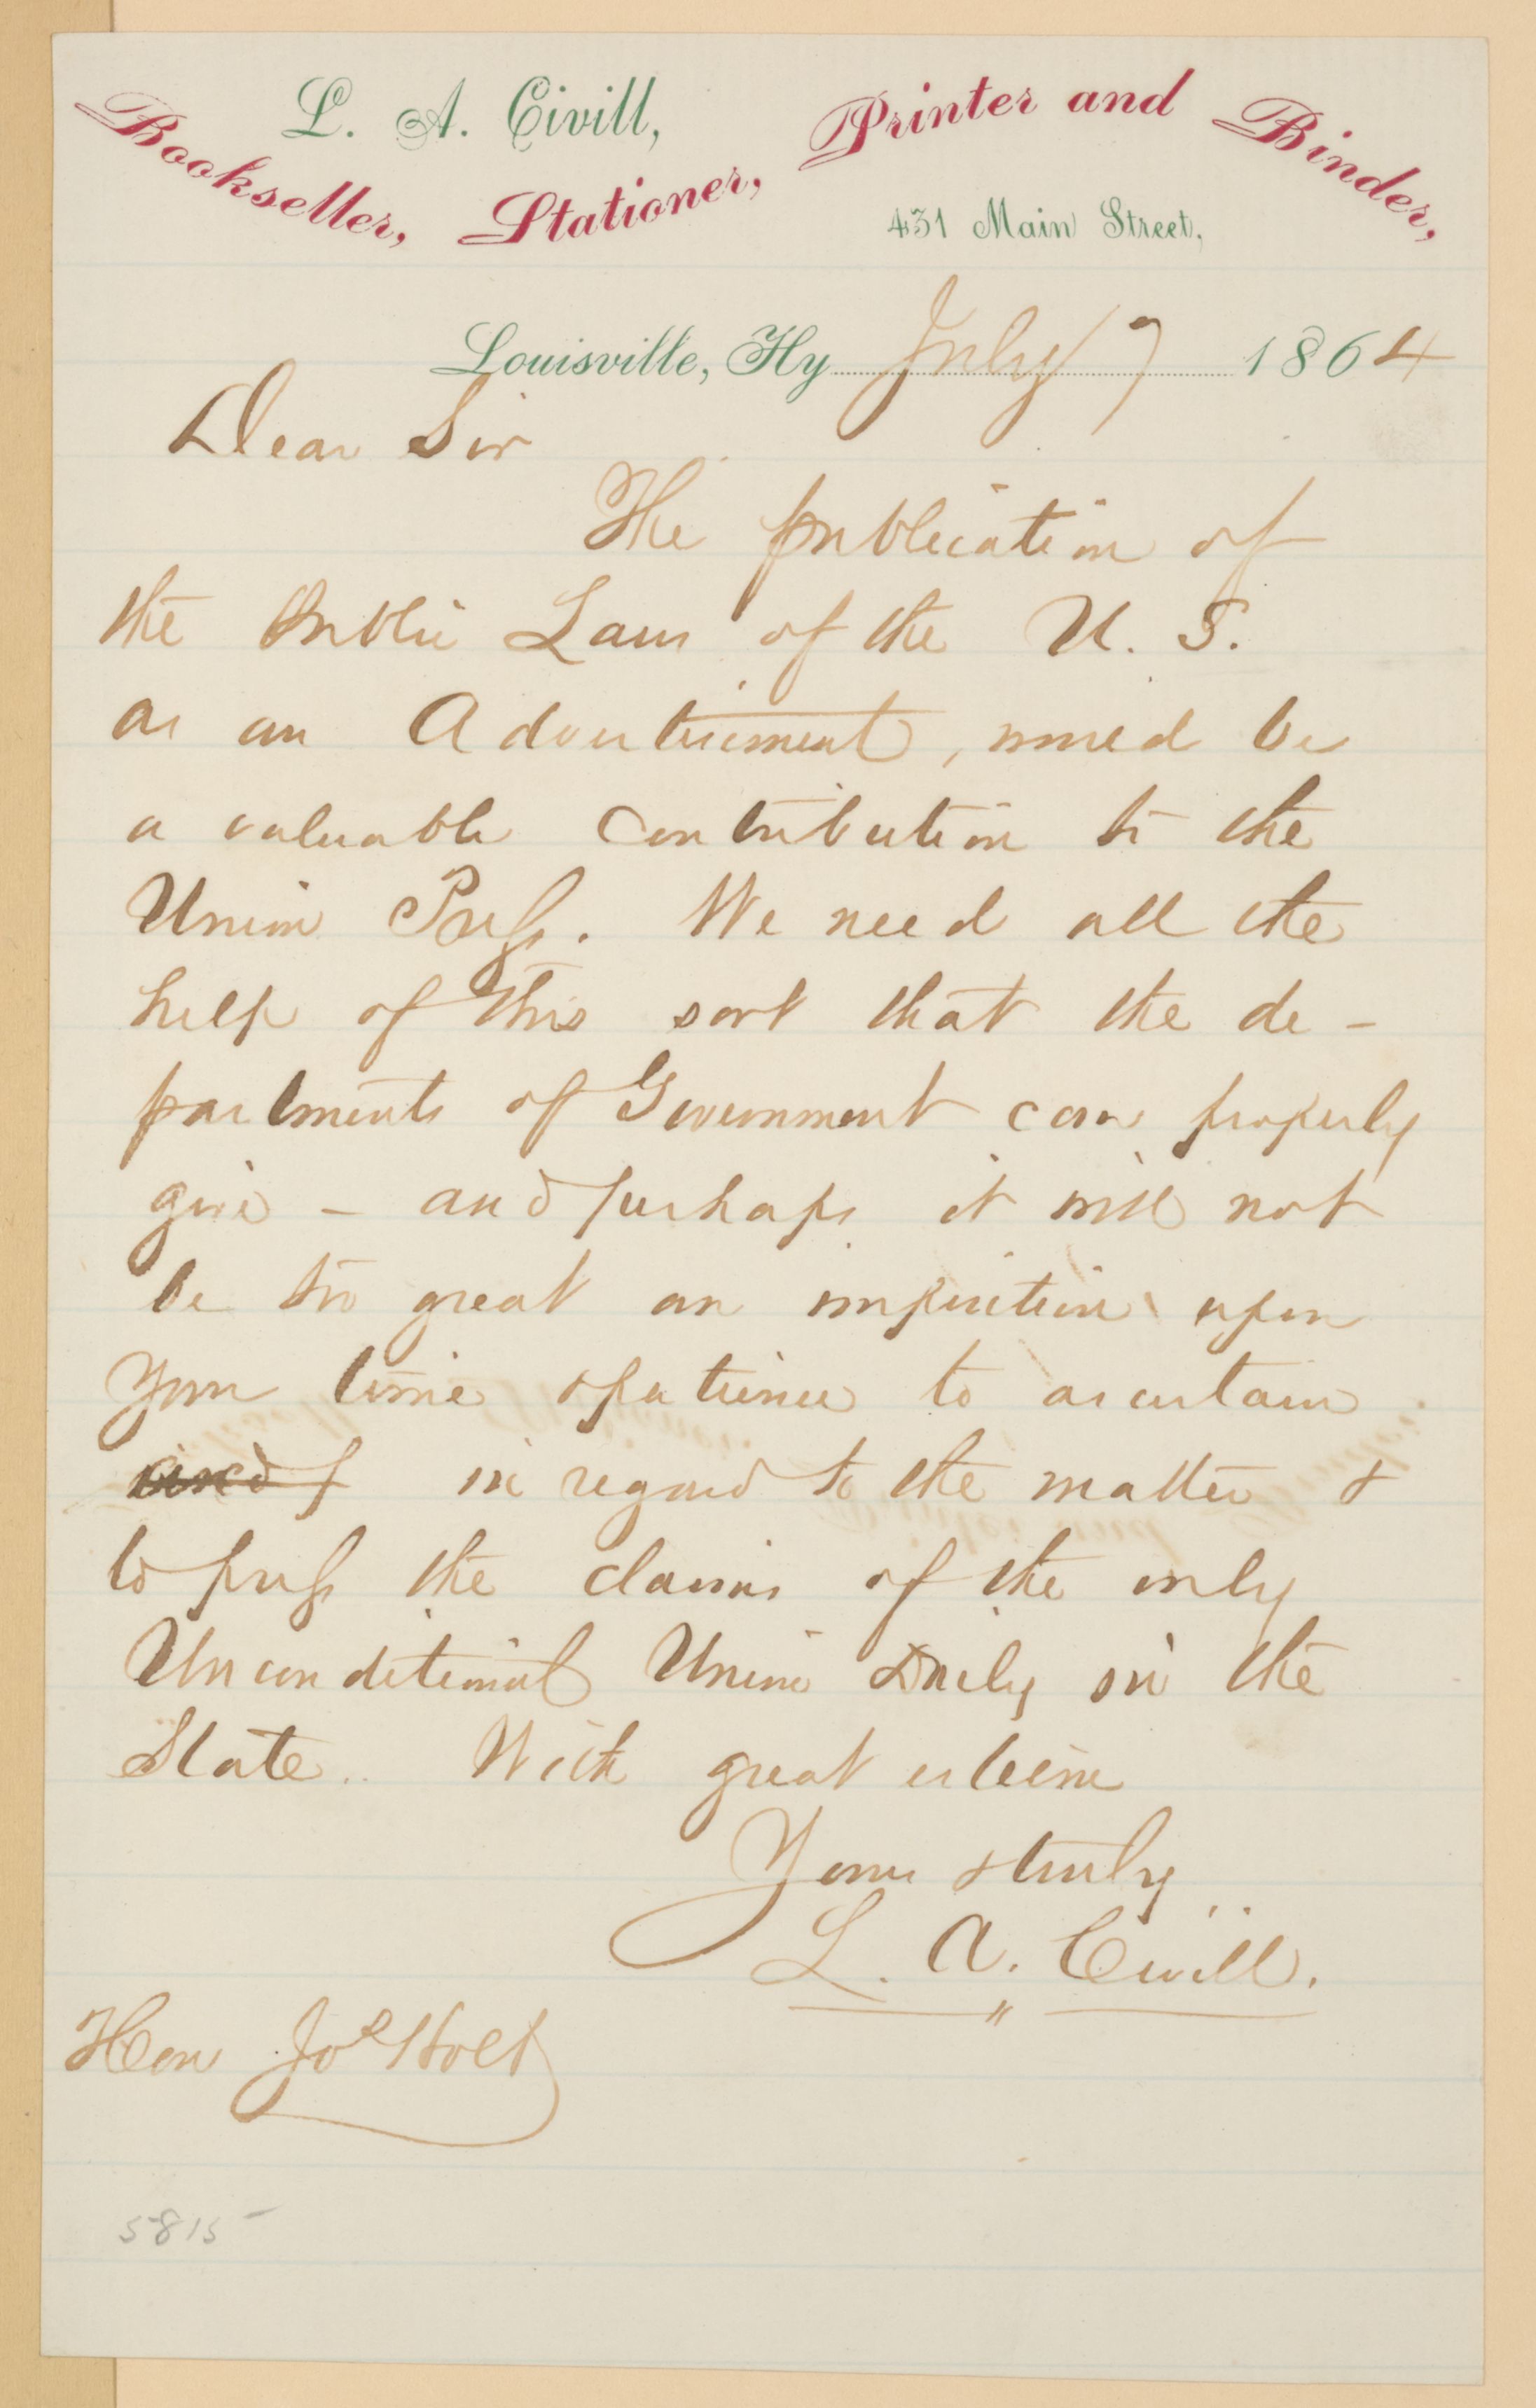 L. A. Civill,
Bookseller, Stationer, Printer and Binder,
431 Main Street,
Louisville, Ky July 7 1864
Dear Sir
The publication of
the Public Laws of the U. S.
as an Advertisement, would be
a valuable contribution to the
Union Press. We need all the
help of this sort that the de-
partments of Government can properly
give – and perhaps it will not
be too great an imposition upon
your time & patience to ascertain
in regard to the matter &
to press the claims of the only
Unconditional Union Daily in the
State. With great esteem
Yours truly
L. A. Civill.
Hon Jos Holt
5815